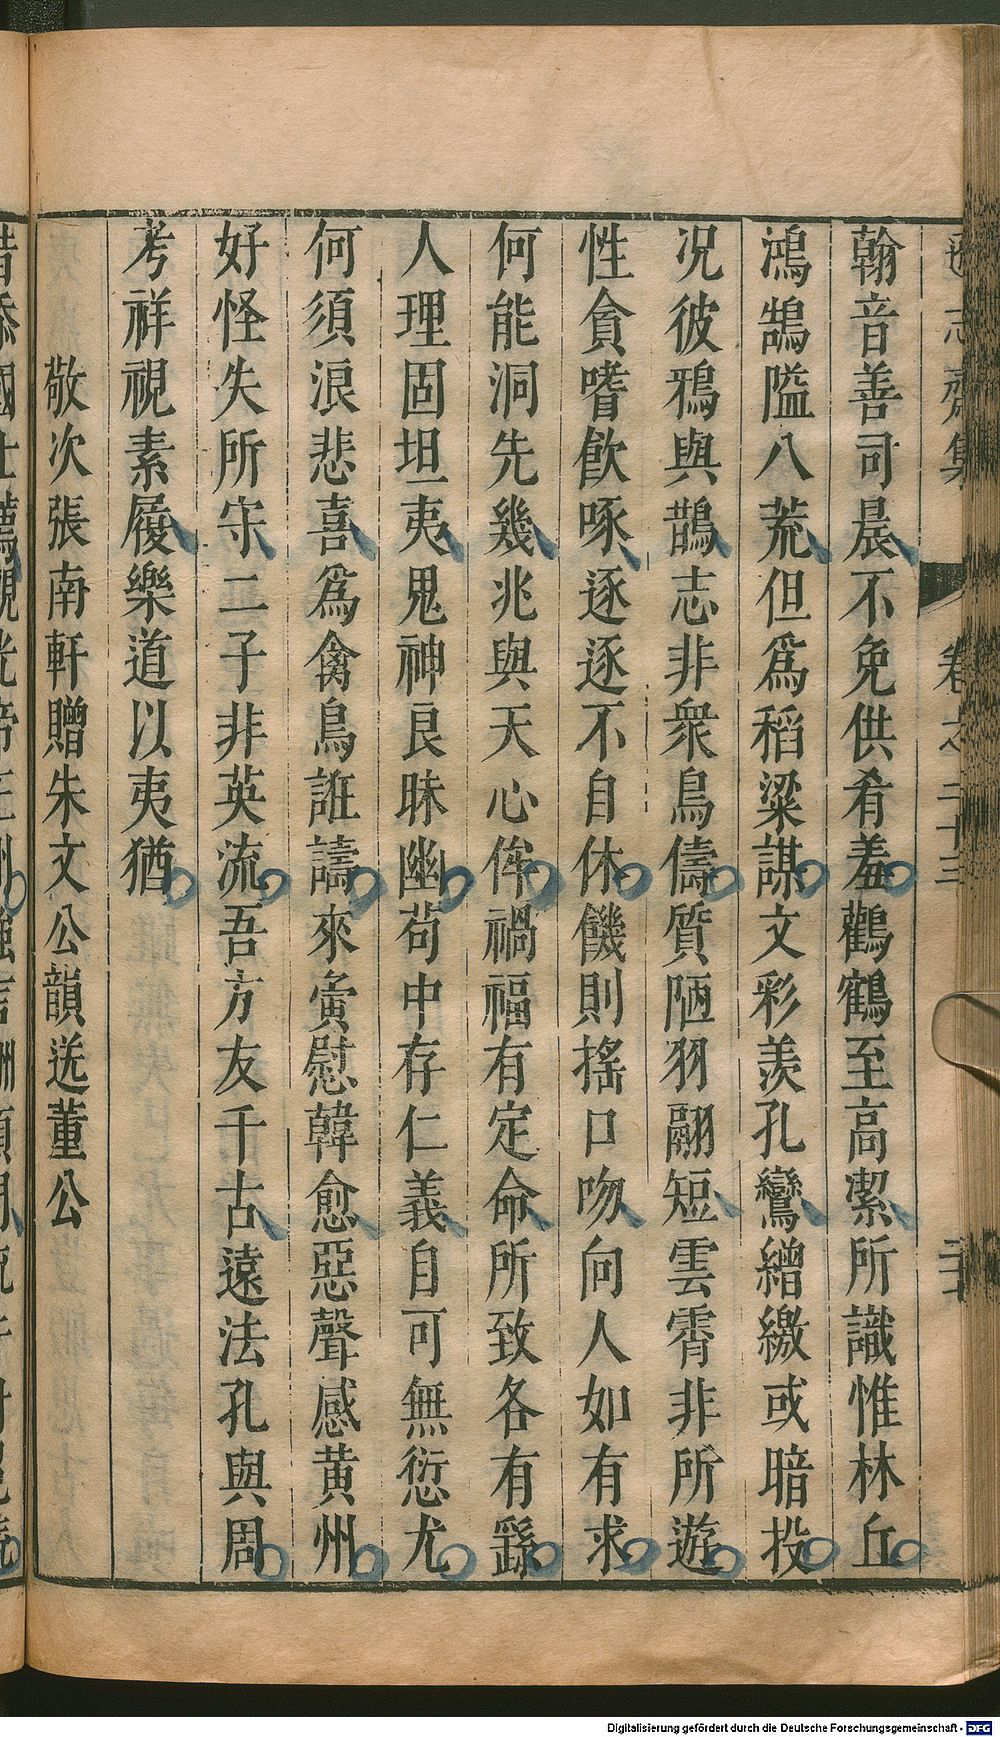 遜志齋集 卷之二十三
翰音善司晨不免供肴羞鸛鶴至高潔所識惟林丘
鴻鵠隘八荒但爲稻粱謀文彩羨孔鸞繒繳或暗投
况彼鴉與鵲志非衆鳥儔質陋羽翮短雲霄非所遊
性貪嗜飲啄逐逐不自休饑則搖口吻向人如有求
何能洞先幾兆與天心侔禍福有定命所致各有繇
人理固坦夷鬼神良昧幽苟中存仁義自可無愆尤
何須浪悲喜爲禽鳥誑譸來寅慰韓愈惡聲感黄州
好怪失所守二子非英流吾方友千古遠法孔與周
考祥視素履樂道以夷猶
敬次張南軒贈朱文公韻送董公
Digitalisierung gefördert durch die Deutsche Forschungsgemeinschaft - DFG